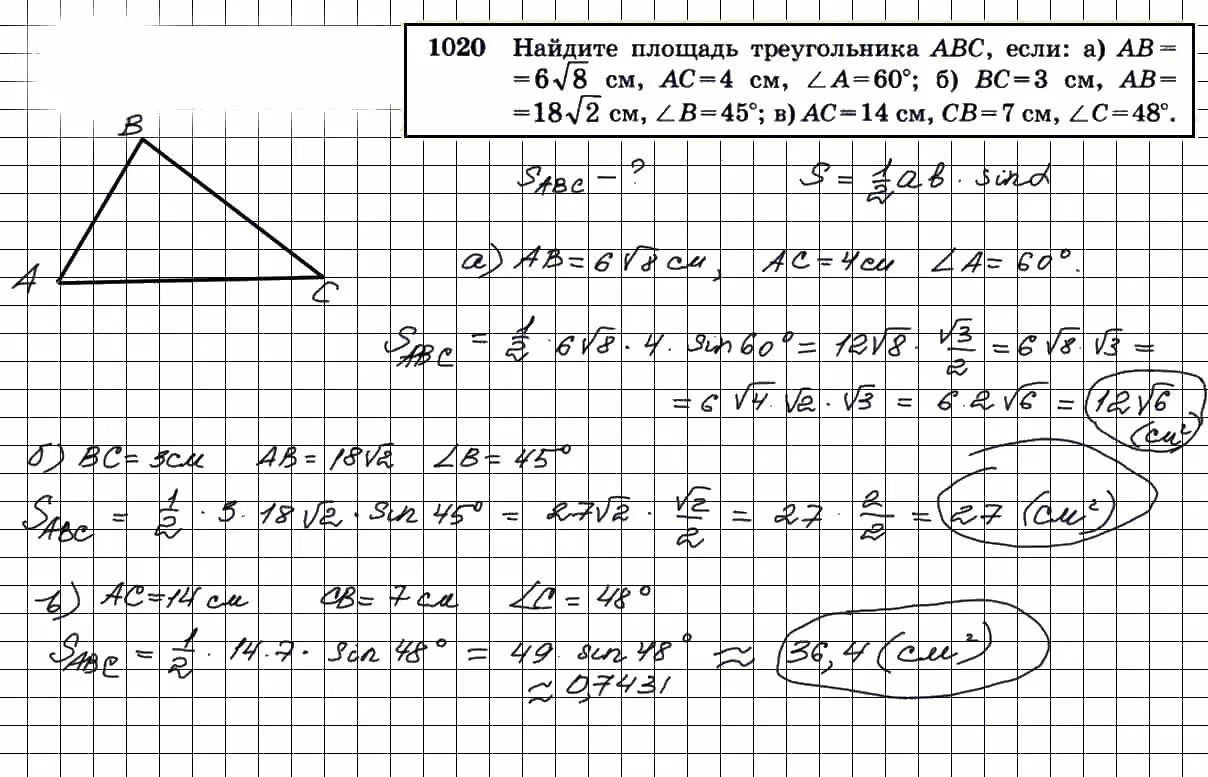 1020 Найдите площадь треугольника ABC, если: а) AB =
= 6√8 см, AC = 4 см, ∠A = 60°; б) BC = 3 см, AB =
= 18√2 см, ∠B = 45°; в) AC = 14 см, CB = 7 см, ∠C = 48°.
B
A
C
S_ABC – ? S = 1/2 ab · sin α
а) AB = 6√8 см, AC = 4 см ∠A = 60°.
S_ABC = 1/2 · 6√8 · 4 · sin 60° = 12√8 · √3/2 = 6√8 · √3 =
= 6 √4 · √2 · √3 = 6 · 2√6 = 12√6 (см²)
б) BC = 3см AB = 18√2 ∠B = 45°
S_ABC = 1/2 · 3 · 18√2 · sin 45° = 27√2 · √2/2 = 27 · 2/2 = 27 (см²)
в) AC = 14 см CB = 7 см ∠C = 48°
S_ABC = 1/2 · 14 · 7 · sin 48° = 49 · sin 48° ≈ 36,4 (см²)
≈ 0,7431